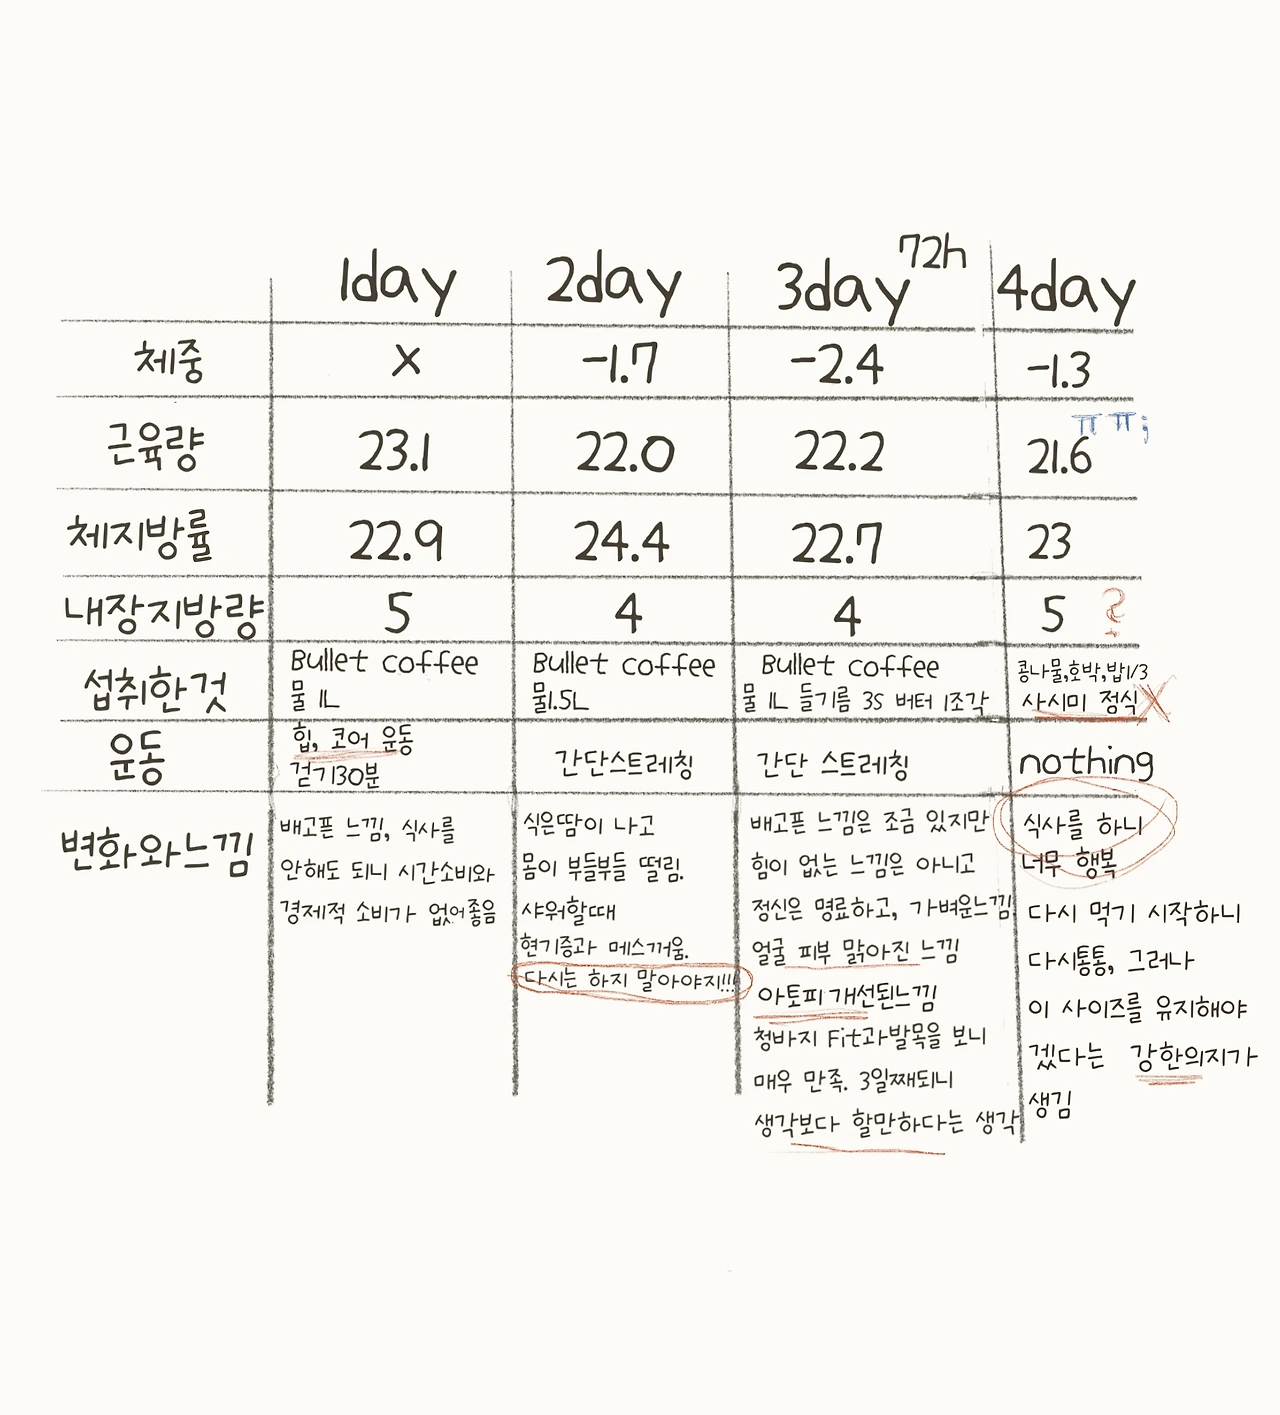 1day 2day 3day 72h 4day
체중 X -1.7 -2.4 -1.3
근육량 23.1 22.0 22.2 21.6 ㅠㅠ;
체지방률 22.9 24.4 22.7 23
내장지방량 5 4 4 5 ?
섭취한것
Bullet coffee
물 1L
Bullet coffee
물1.5L
Bullet coffee
물 1L 들기름 3S 버터 1조각
콩나물,호박,밥1/3
사시미 정식 X
운동
힙, 코어 운동
걷기30분
간단스트레칭
간단 스트레칭
nothing
변화와느낌
배고픈 느낌, 식사를
안해도 되니 시간소비와
경제적 소비가 없어좋음
식은땀이 나고
몸이 부들부들 떨림.
샤워할때
현기증과 메스꺼움.
다시는 하지 말아야지!!!
배고픈 느낌은 조금 있지만
힘이 없는 느낌은 아니고
정신은 명료하고, 가벼운느낌
얼굴 피부 맑아진 느낌
아토피개선된느낌
청바지 Fit과발목을 보니
매우 만족. 3일째되니
생각보다 할만하다는 생각
식사를 하니
너무 행복
다시 먹기 시작하니
다시통통, 그러나
이 사이즈를 유지해야
겠다는 강한의지가
생김